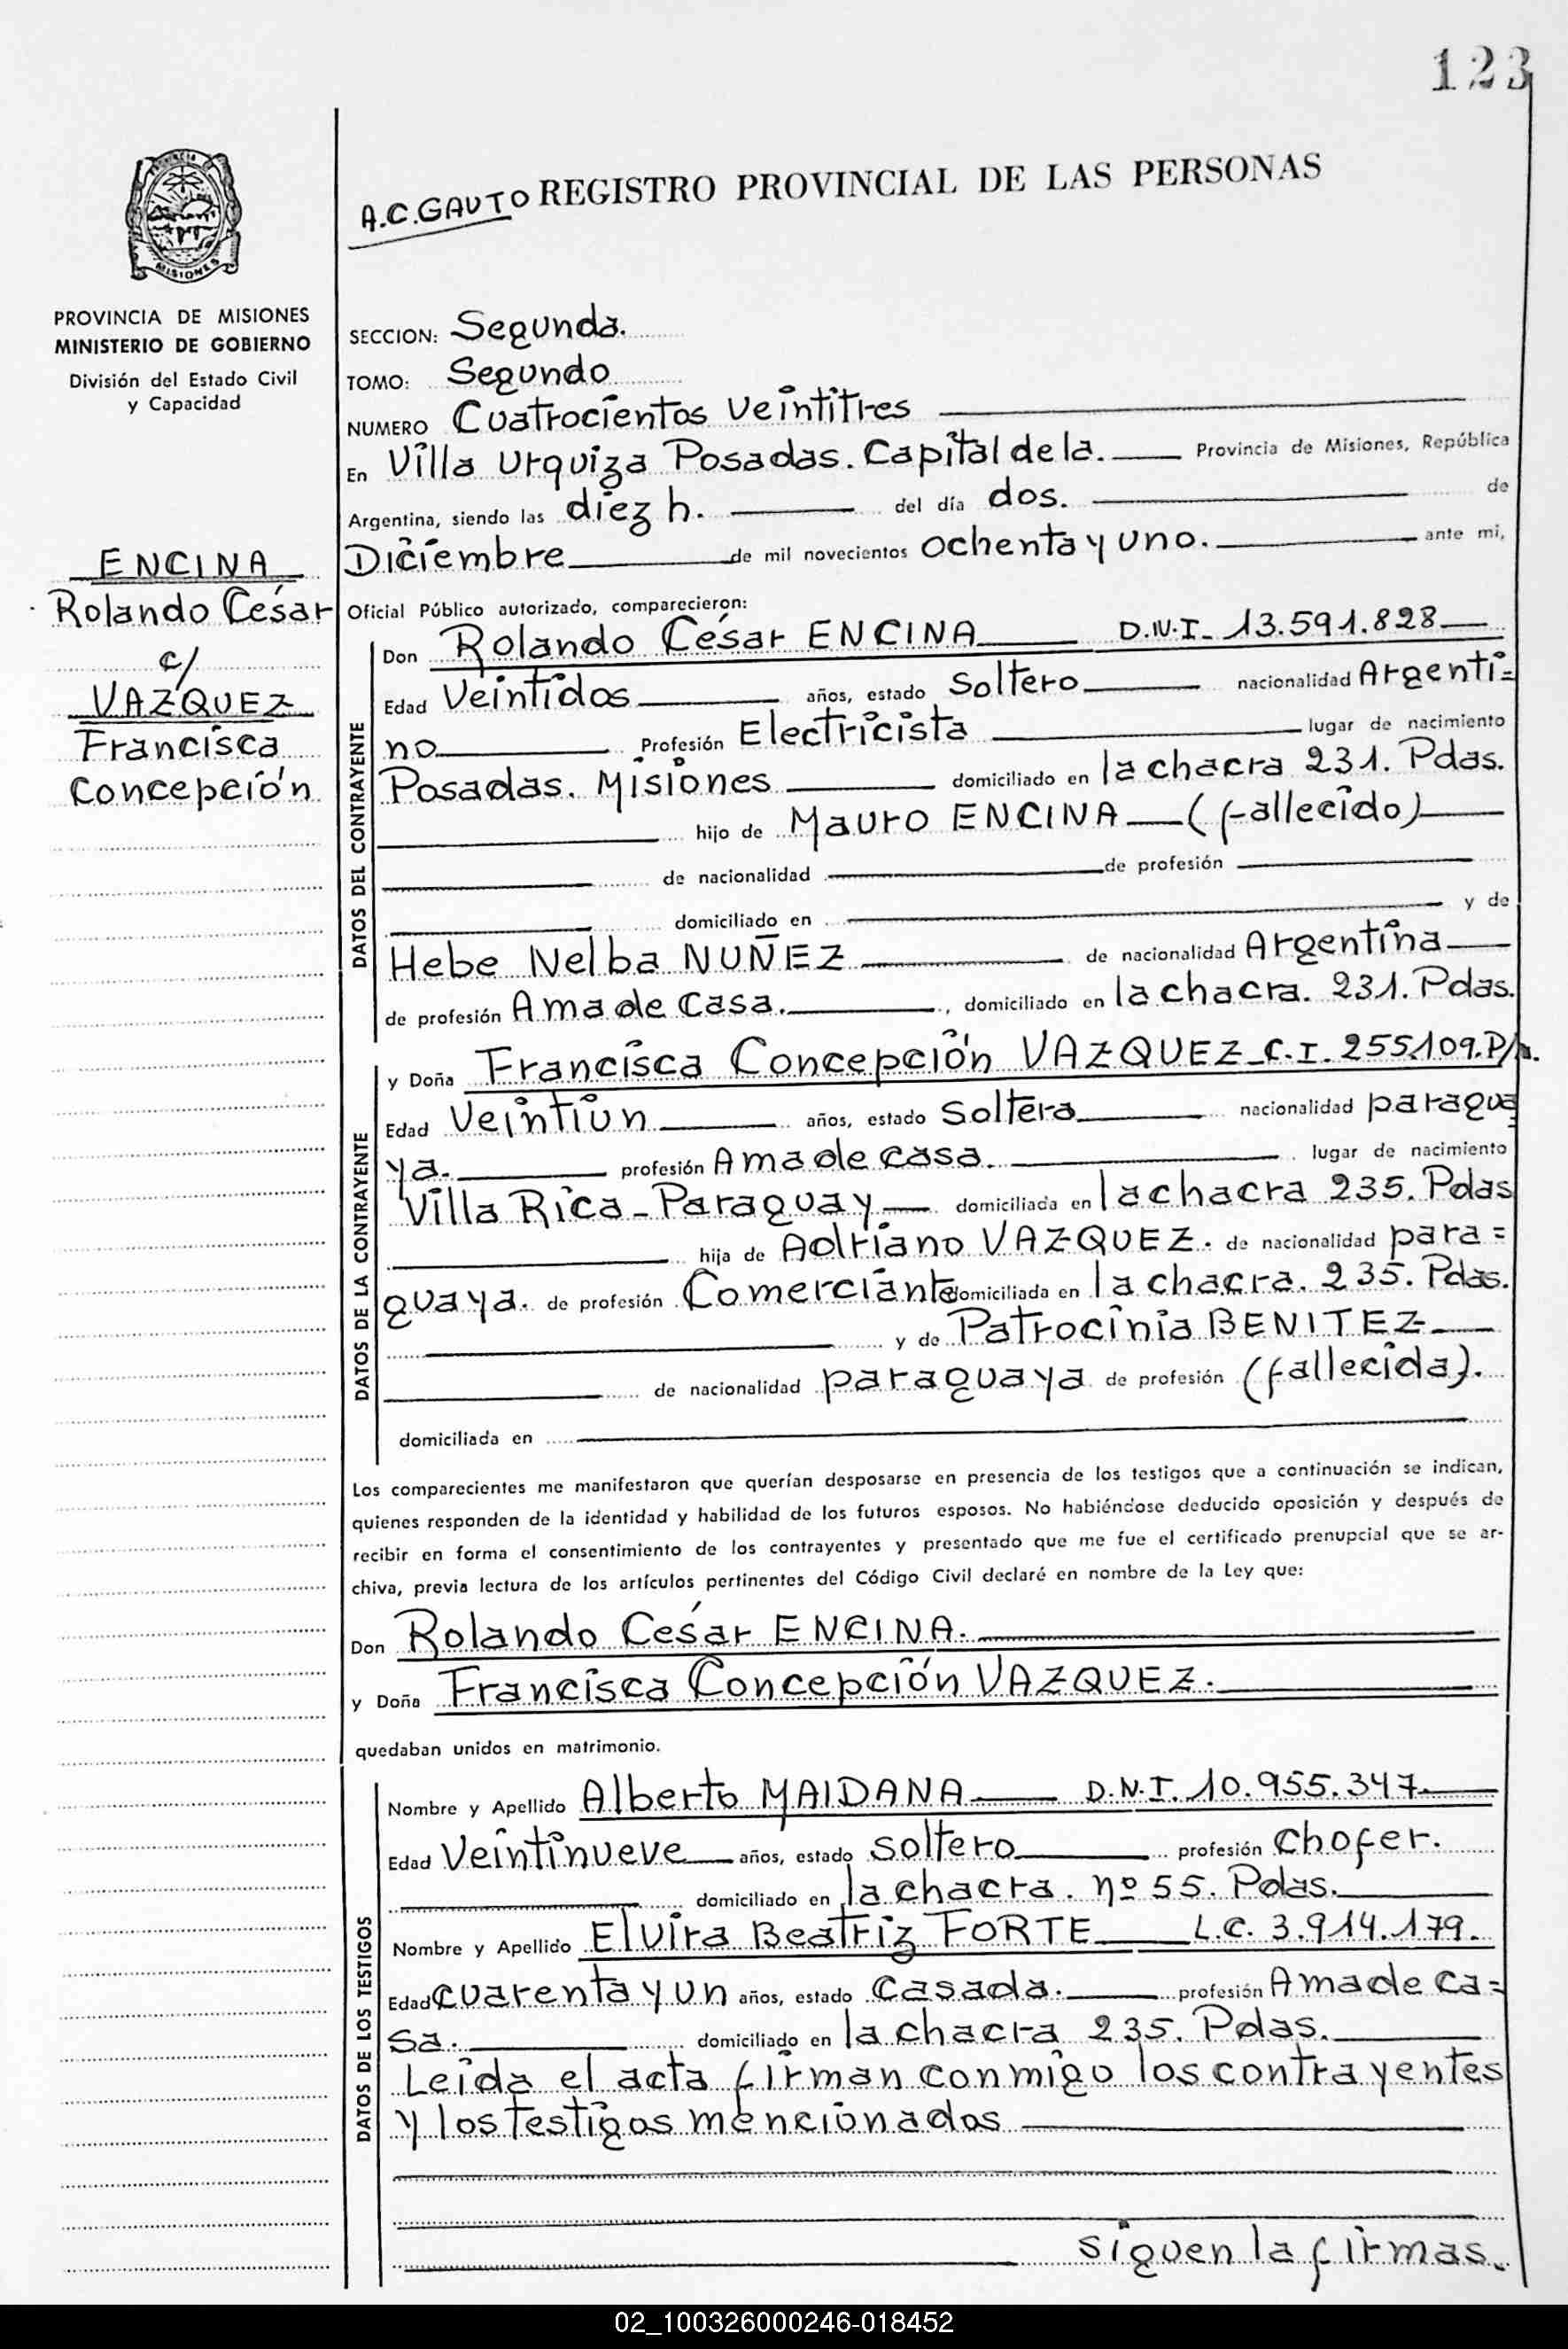 123
A.C.GAUTO REGISTRO PROVINCIAL DE LAS PERSONAS
PROVINCIA
MISIONES
PROVINCIA DE MISIONES
MINISTERIO DE GOBIERNO
División del Estado Civil
y Capacidad
ENCINA
Rolando César
c/
VAZQUEZ
Francisca
Concepción
SECCION: Segunda.
TOMO: Segundo
NUMERO Cuatrocientos Veintitres
En Villa Urquiza Posadas. Capital de la. Provincia de Misiones, República
Argentina, siendo las diez h. del día dos. de
Diciembre de mil novecientos ochenta y uno. ante mi,
Oficial Público autorizado, comparecieron:
DATOS DEL CONTRAYENTE
Don Rolando César ENCINA D.N.I- 13.591.828
Edad Veintidos años, estado Soltero nacionalidad Argenti=
no Profesión Electricista lugar de nacimiento
Posadas. Misiones domiciliado en la chacra 231. Pdas.
hijo de Mauro ENCINA (fallecido)
de nacionalidad de profesión
domiciliado en y de
Hebe Nelba NUÑEZ de nacionalidad Argentina
de profesión Ama de casa. , domiciliado en la chacra. 231. Pdas.
DATOS DE LA CONTRAYENTE
y Doña Francisca Concepción VAZQUEZ C.I. 255.109.P/
Edad Veintiún años, estado Soltera nacionalidad paragua
ya. profesión Ama de casa. lugar de nacimiento
Villa Rica - Paraguay domiciliada en la chacra 235. Pdas
hija de Adriano VAZQUEZ. de nacionalidad para=
guaya. de profesión Comerciante domiciliada en la chacra. 235. Pdas.
y de Patrocinia BENITEZ
de nacionalidad paraguaya de profesión (fallecida).
domiciliada en
Los comparecientes me manifestaron que querían desposarse en presencia de los testigos que a continuación se indican,
quienes responden de la identidad y habilidad de los futuros esposos. No habiéndose deducido oposición y después de
recibir en forma el consentimiento de los contrayentes y presentado que me fue el certificado prenupcial que se ar-
chiva, previa lectura de los artículos pertinentes del Código Civil declaré en nombre de la Ley que:
Don Rolando César ENCINA.
y Doña Francisca Concepción VAZQUEZ.
quedaban unidos en matrimonio.
DATOS DE LOS TESTIGOS
Nombre y Apellido Alberto MAIDANA D.N.I. 10.955.347
Edad Veintinueve años, estado soltero profesión Chofer.
domiciliado en la chacra. nº 55. Pdas.
Nombre y Apellido Elvira Beatriz FORTE L.C. 3.914.179.
Edad cuarenta y un años, estado Casada. profesión Ama de Ca=
sa. domiciliado en la chacra 235. Pdas.
Leida el acta firman conmigo los contrayentes
y los testigos mencionados
siguen la firmas.
02_100326000246-018452